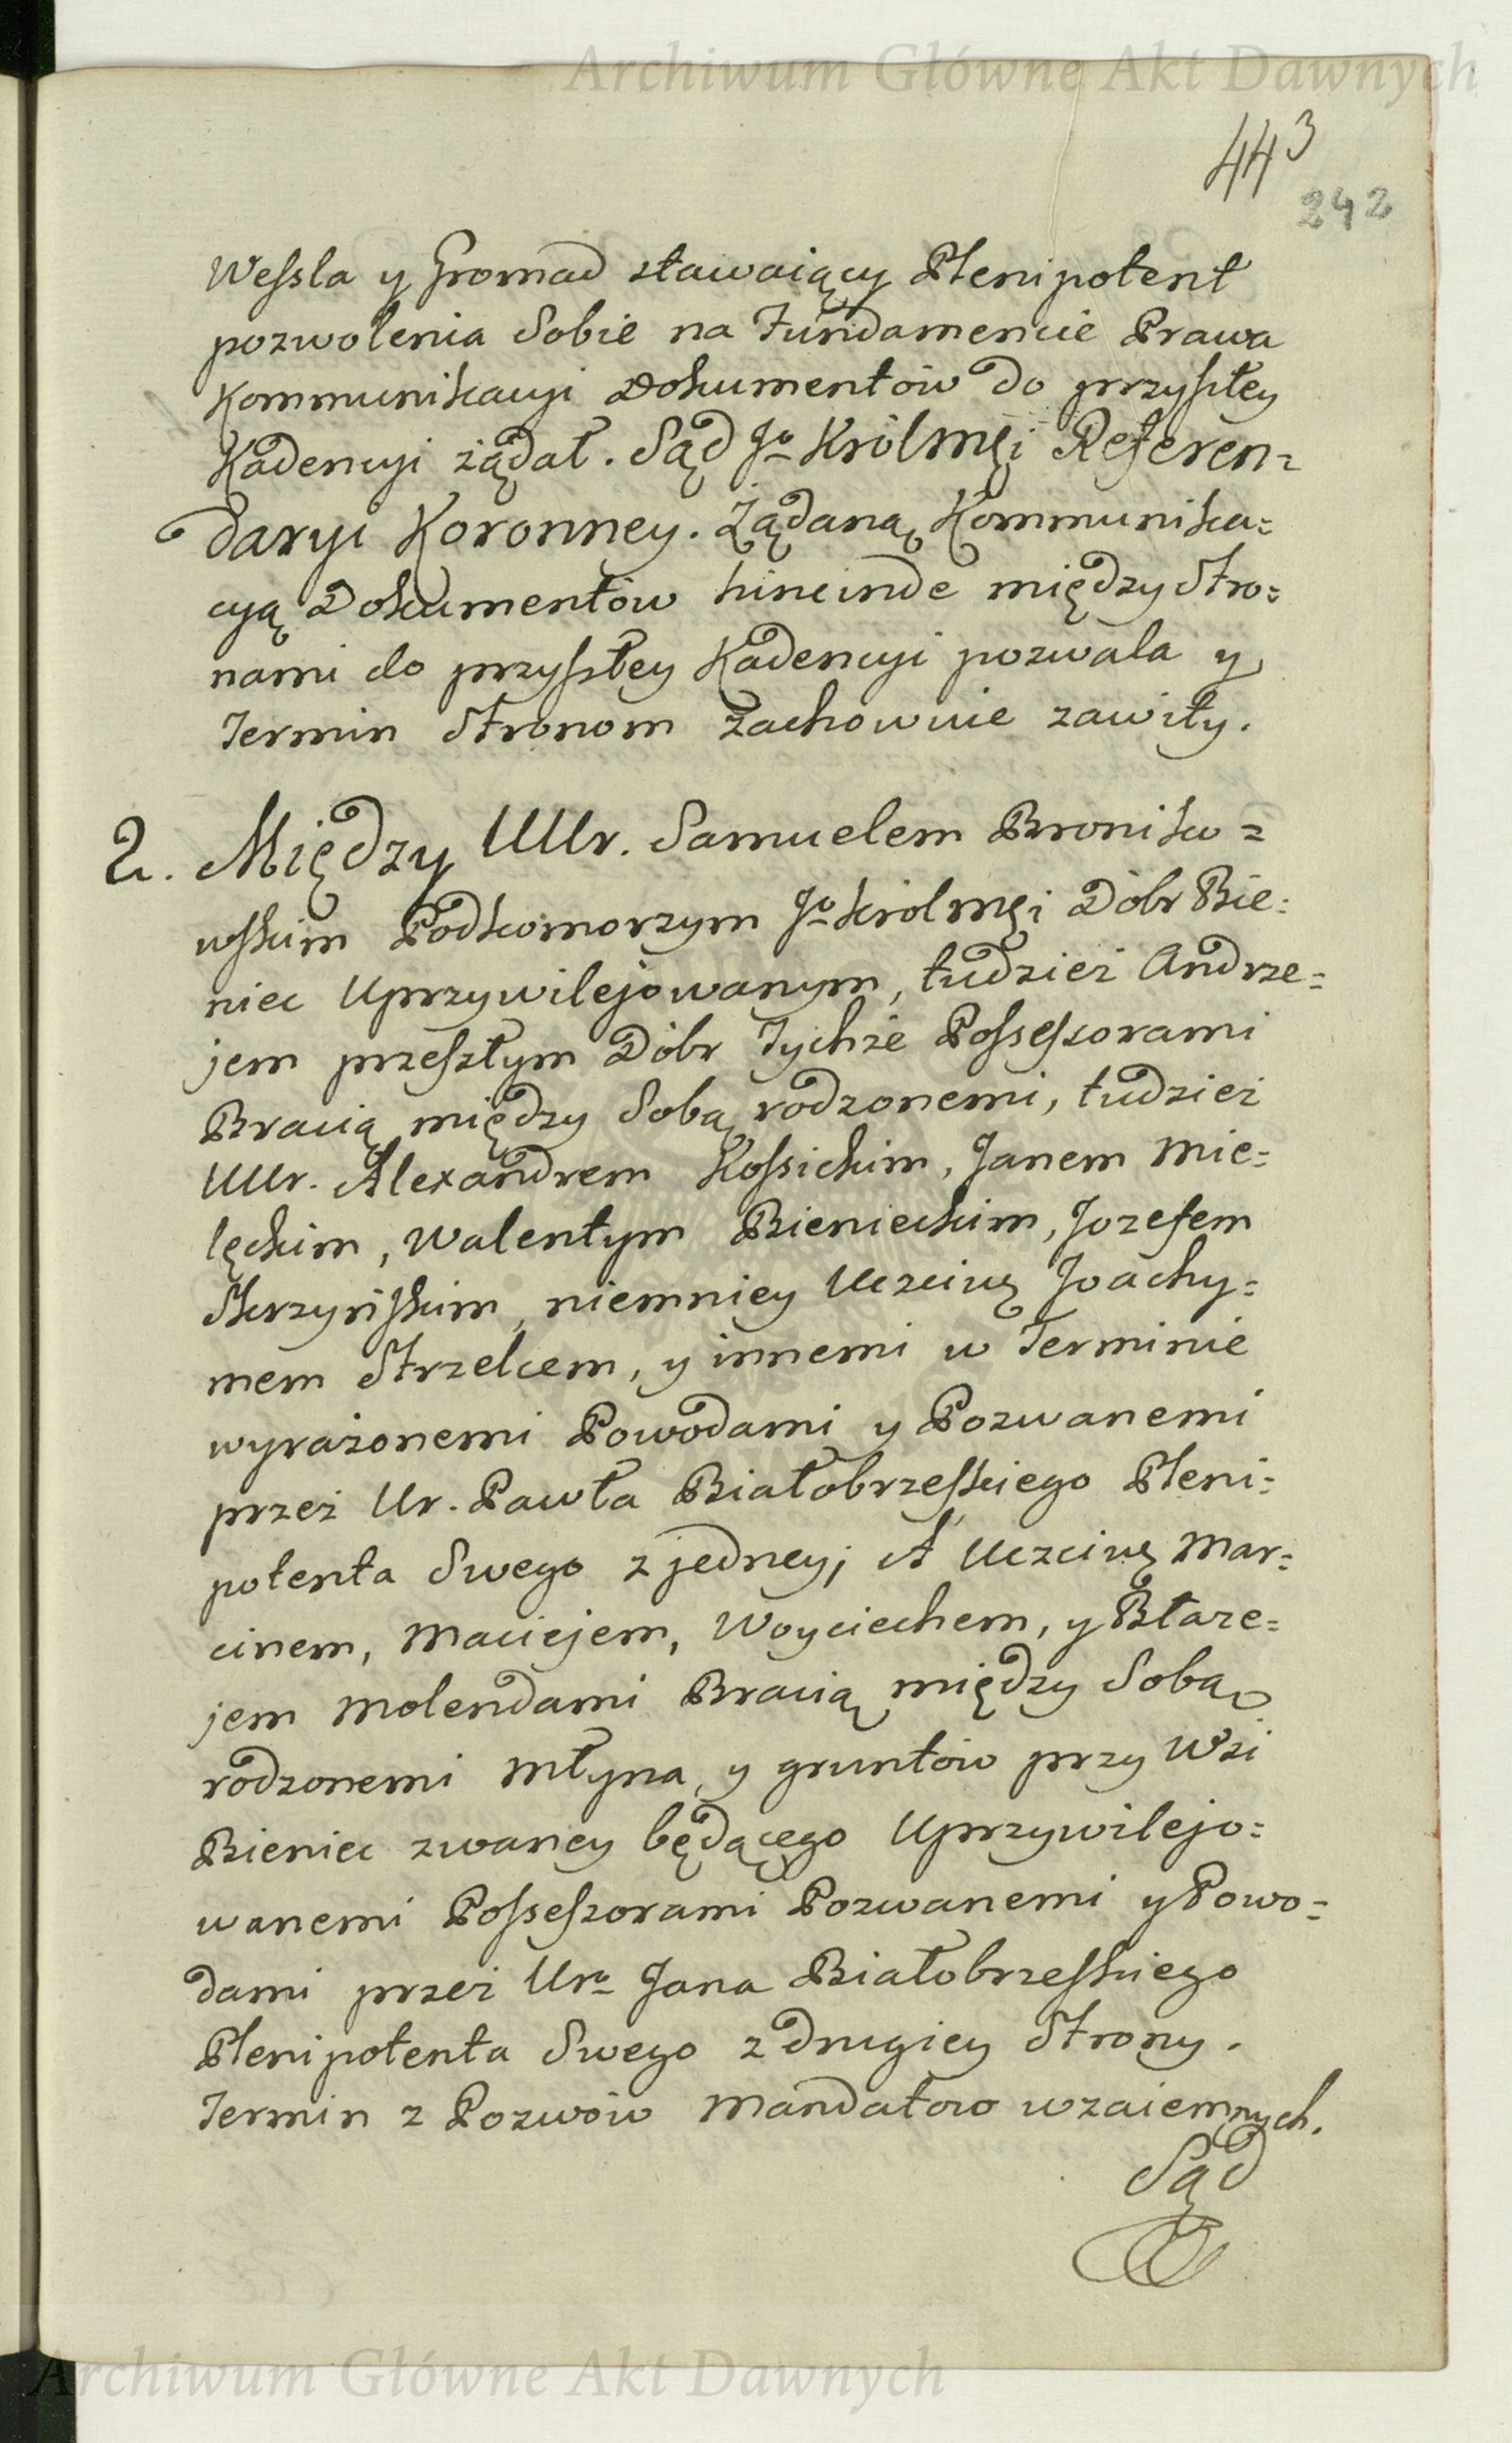 Archiwum Główne Akt Dawnych
443
242
Wessla y Gromad stawaiący Plenipotent
pozwolenia Sobie na Fundamencie Prawa
Kommunikacyi Dokumentów do przyszłey
Kadencyi żądał. Sąd Jo Królmci Referen=
daryi Koronney. Żądaną Kommunika=
cyą Dokumentów hincinde między Stro=
nami do przyszłey Kadencyi pozwala y
Termin Stronom Zachowuie zawity.
2. Między UUr. Samuelem Bronikow=
wskim Podkomorzym Jo Królmci Dóbr Bie=
niec Uprzywilejowanym, tudzież Andrze=
jem przeszłym Dóbr Tychże Possessorami
Bracią między Sobą rodzonemi, tudzież
UUr. Alexandrem Kossickim, Janem Mie=
lęckim, Walentym Bienieckim, Jozefem
Skrzyńskim, niemniey Uczciwę Joachy=
mem Strzelcem, y innemi w Terminie
wyrażonemi Powodami y Pozwanemi
przez Ur. Pawła Białobrzeskiego Pleni=
potenta Swego z jedney; A Uczciwę Mar=
cinem, Maciejem, Woyciechem, y Błaże=
jem Molendami Bracią między Sobą
rodzonemi Młyna y gruntów przy Wsi
Bieniec zwaney będącego Uprzywilejo=
wanemi Possessorami Pozwanemi y Powo=
dami przez Uro Jana Białobrzeskiego
Plenipotenta Swego z drugiey Strony.
Termin z Pozwów Mandatow wzaiemnych.
Sąd
Archiwum Główne Akt Dawnych